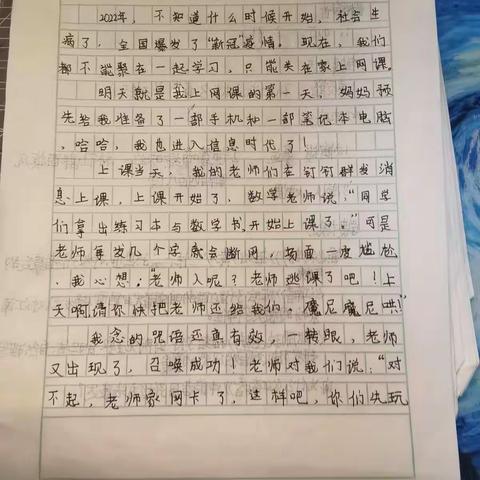 2022年，不知道什么时候开始，社会生
病了，全国爆发了“新冠”疫情。现在，我们
都不能聚在一起学习，只能关在家上网课。
明天就是我上网课的第一天，妈妈预
先给我准备了一部手机和一部笔记本电脑
，哈哈，我也进入信息时代了！
上课当天，我的老师们在钉钉群发消
息上课，上课开始了，数学老师说：“同学
们拿出练习本与数学书，开始上课了。”可是
老师每发几个字就会断网，场面一度尴尬
，我心想：“老师人呢？老师逃课了吧！上
天啊，请你快把老师还给我们，魔尼魔尼哄！”
我念的咒语还真有效，一转眼，老师
又出现了，召唤成功！老师对我们说：“对
不起，老师家网卡了，这样吧，你们先玩